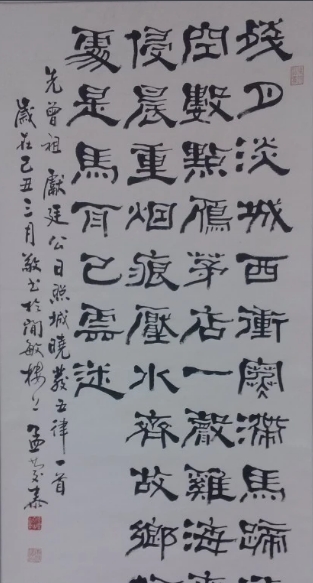 殘月淡城西衝寒滯馬蹄
空數點鴈茅店一聲雞海
侵晨重烟痕壓水齊故鄉
處是馬首已雲迷
先曾祖獻廷公日照城曉發五律一首
歲在己丑三月敬書於閒敏樓上孟慶泰